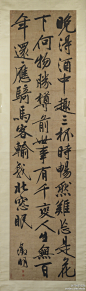 晚得酒中趣三杯時暢然難忘是花
下何物勝樽前世事有千變人生無百
年還應騎馬客輸我北窓眠